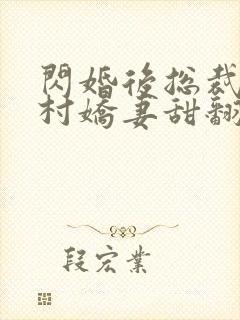 閃婚後總裁
村嬌妻甜翻
段宏業